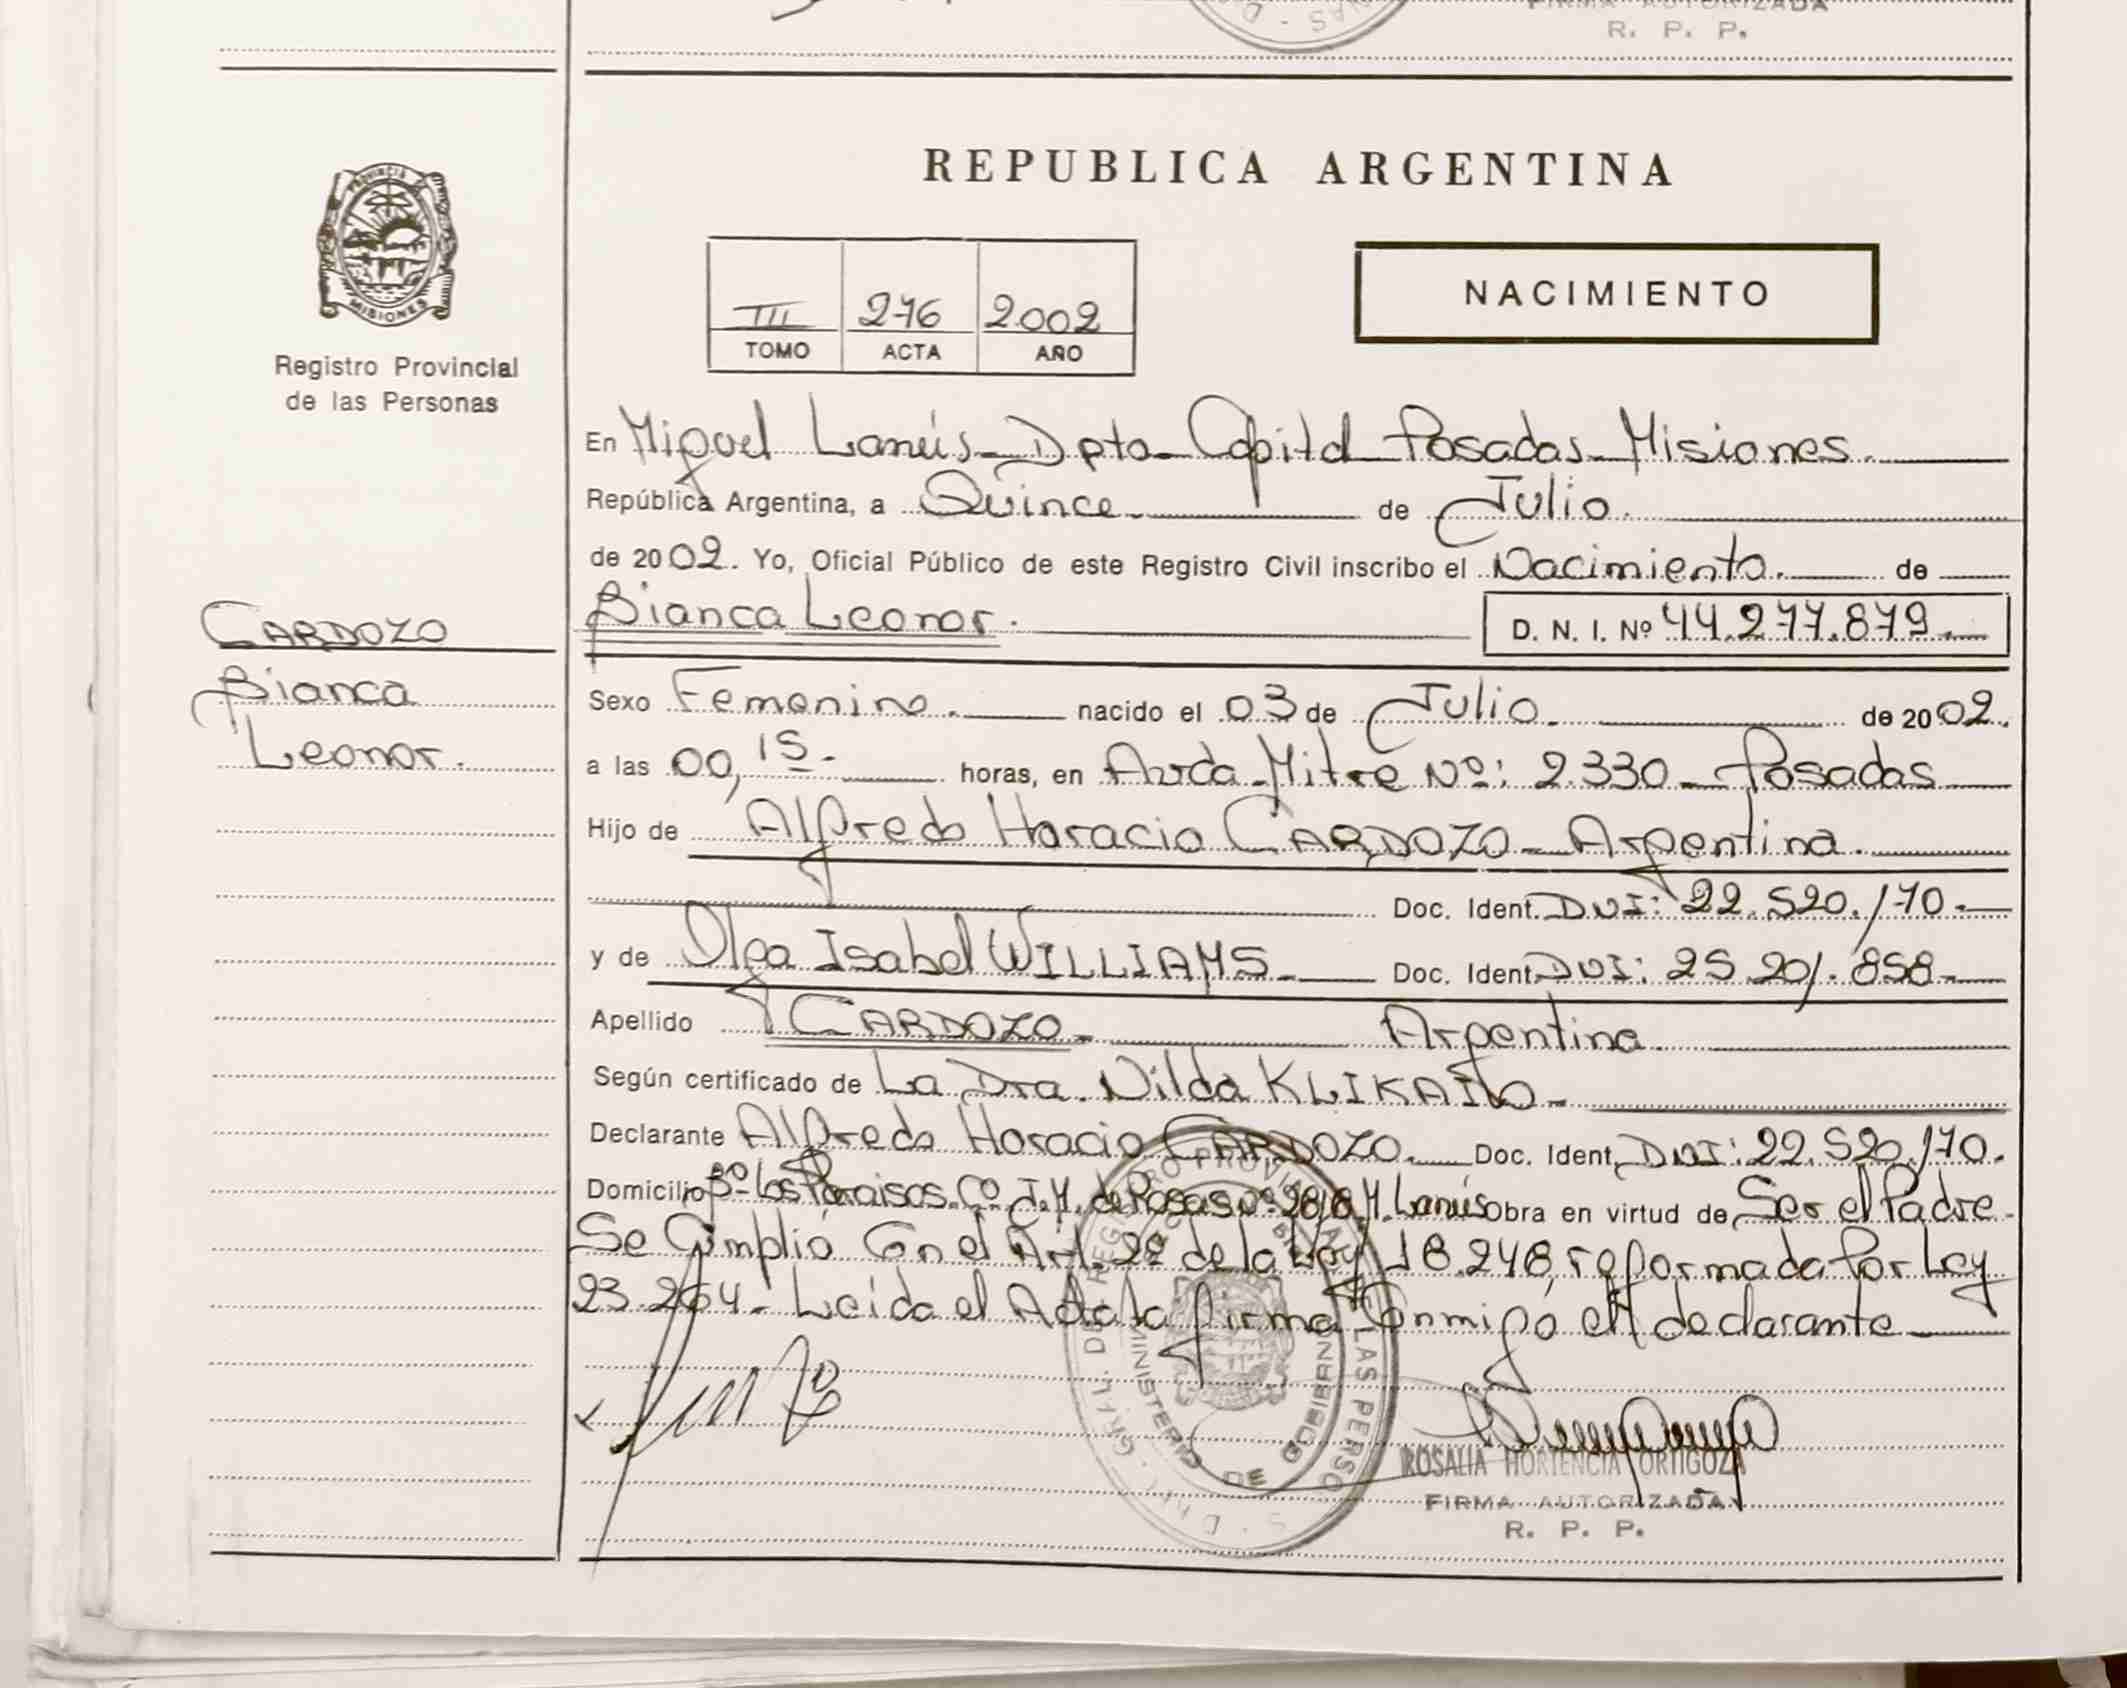 FIRMA AUTORIZADA
R. P. P.
PROVINCIA DE MISIONES
Registro Provincial
de las Personas
REPUBLICA ARGENTINA
NACIMIENTO
III 276 2.002
TOMO ACTA AÑO
En Miguel Lanús - Dpto - Capital - Posadas - Misiones.
República Argentina, a Quince de Julio.
de 2002. Yo, Oficial Público de este Registro Civil inscribo el Nacimiento. de
Bianca Leonor. D. N. I. Nº 44.277.879
CARDOZO
Bianca
Leonor.
Sexo Femenino. nacido el 03 de Julio. de 2002.
a las 00,15 horas, en Avda. Mitre Nº: 2.330 - Posadas
Hijo de Alfredo Horacio CARDOZO - Argentina.
Doc. Ident. DNI: 22.520.170.
y de Olga Isabel WILLIAMS. Doc. Ident. DNI: 25.201.858
Apellido CARDOZO Argentina.
Según certificado de La Dra. Nilda
Declarante Alfredo Horacio CARDOZO. Doc. Ident. DNI: 22.520.170.
Domicilio Bº Los Paraisos. J.M. de Rosas Nº M. Lanús obra en virtud de Ser el Padre.
Se Cumplió Con el Art. 2º de la Ley 18.248, reformada Por Ley
23.264. Leída el Acta la firma Conmigo el declarante
DIREC. GRAL. DE REGISTRO PROVINCIAL DE LAS PERSONAS
MINISTERIO DE GOBIERNO
ROSALIA HORTENCIA ORTIGOZA
FIRMA AUTORIZADA
R. P. P.